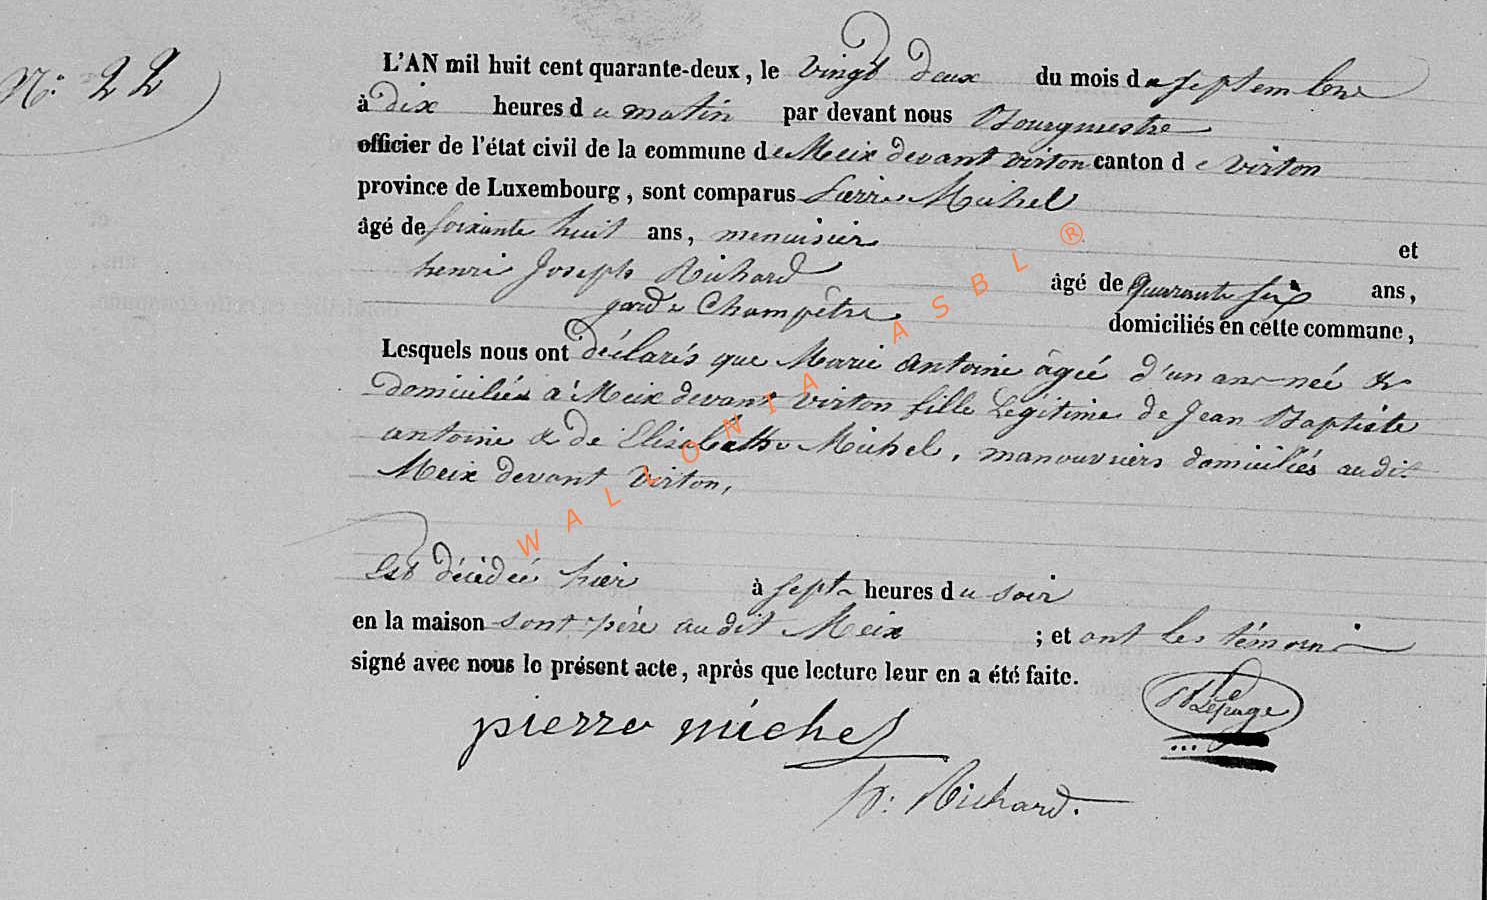 N: 22
L'AN mil huit cent quarante-deux, le vingt deux du mois de septembre
à dix heures du matin par devant nous Bourgmestre
officier de l'état civil de la commune de Meix devant virton canton de virton
province de Luxembourg, sont comparus Pierre Michel
âgé de soixante huit ans, menuisier et
henri Joseph Richard âgé de quarante six ans,
garde Champêtre domiciliés en cette commune,
Lesquels nous ont déclarés que Marie Antoine âgée d'un an née &
domiciliée à Meix devant virton fille Légitime de Jean Baptiste
antoine & de Elisabethe Michel, manouvriers domiciliés audit
Meix devant virton,
Est décédée hier à sept heures du soir
en la maison sont père audit Meix ; et ont les témoins
signé avec nous le présent acte, après que lecture leur en a été faite.
Lepage
pierre michel
h: Richard.
WALLONIA ASBL ®